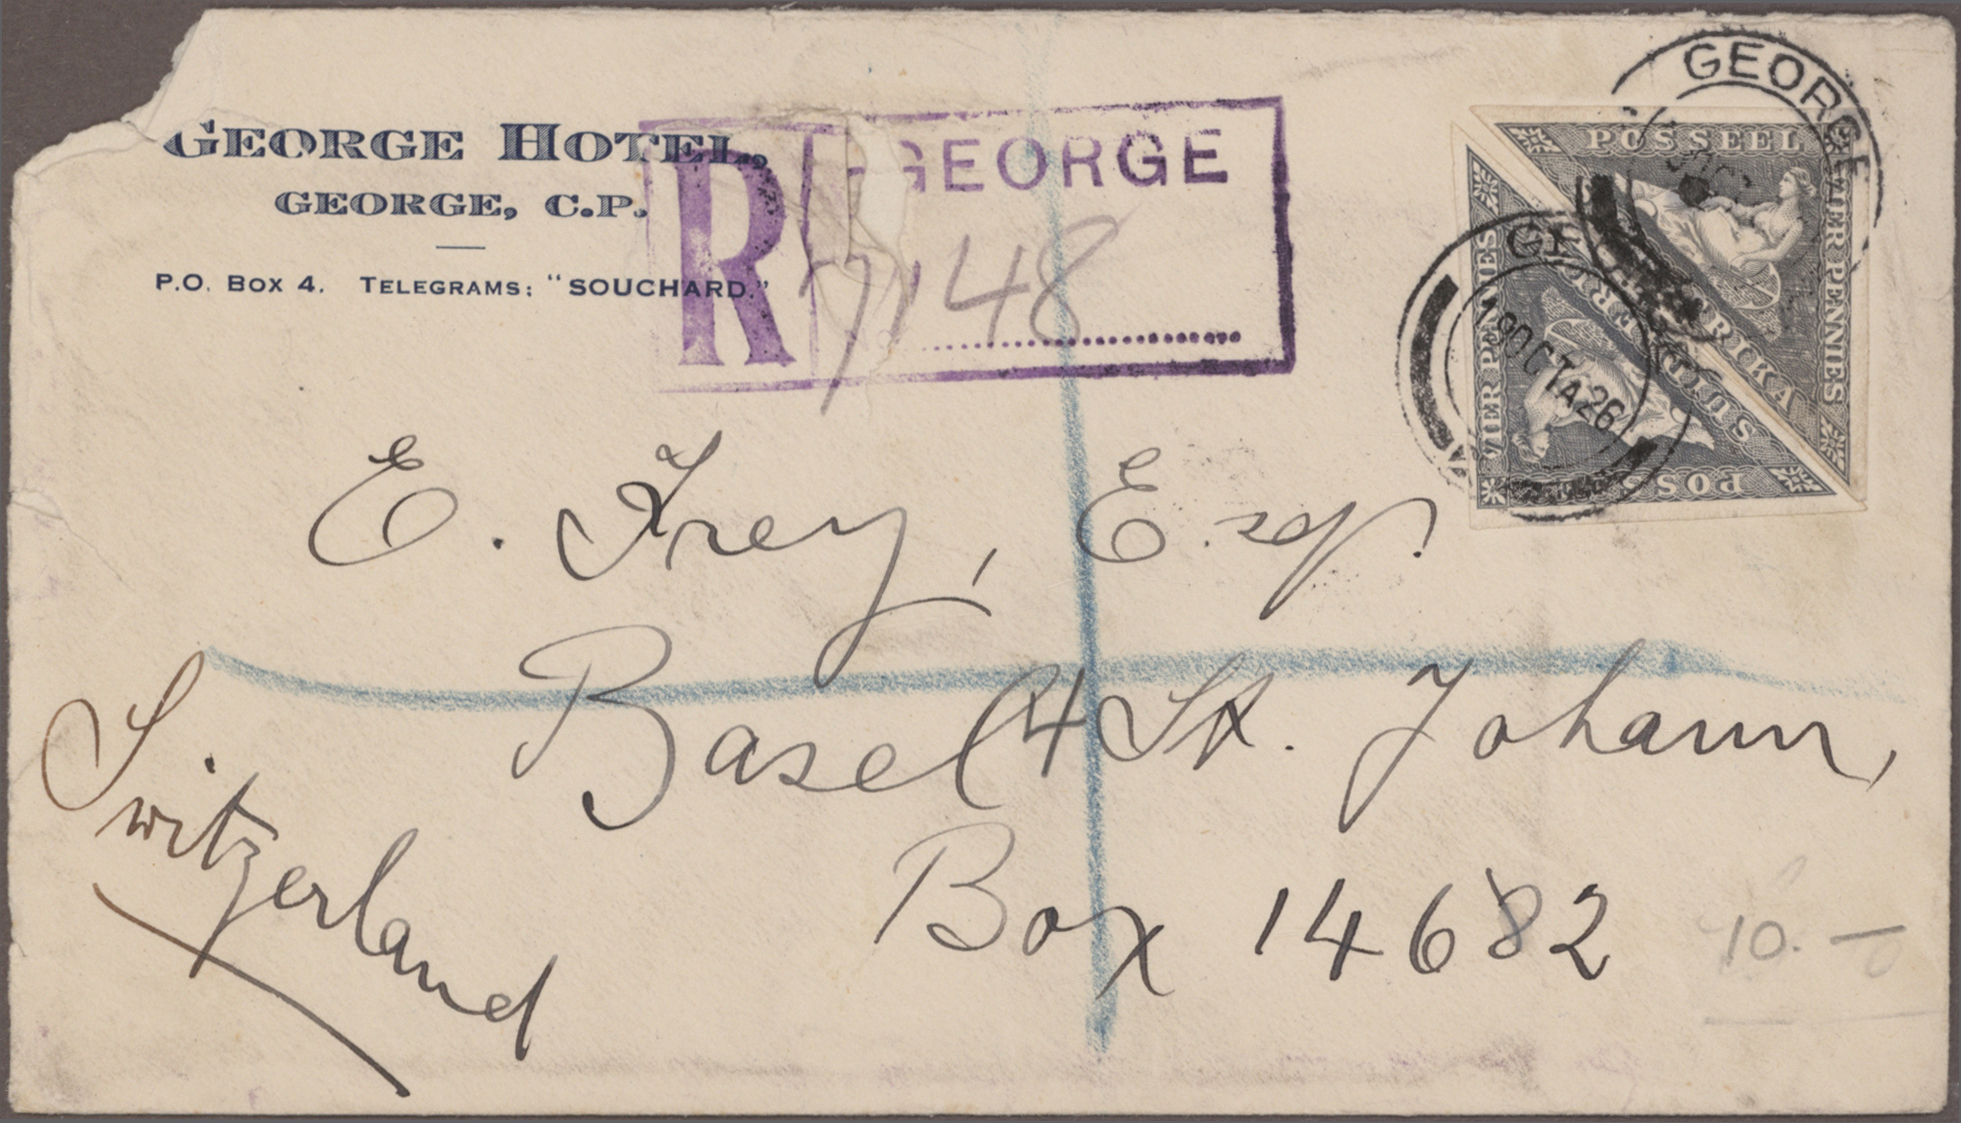 GEORGE HOTEL,
GEORGE, C.P.
P.O. BOX 4. TELEGRAMS: "SOUCHARD."
R GEORGE
7148
GEORGE
POSSEEL
VIER PENNIES
RIKA
9 OCT A 26
VIER PENNIES
E. Frey, Esq.
Basel 4 St. Johann,
Box 14682
Switzerland
10. —